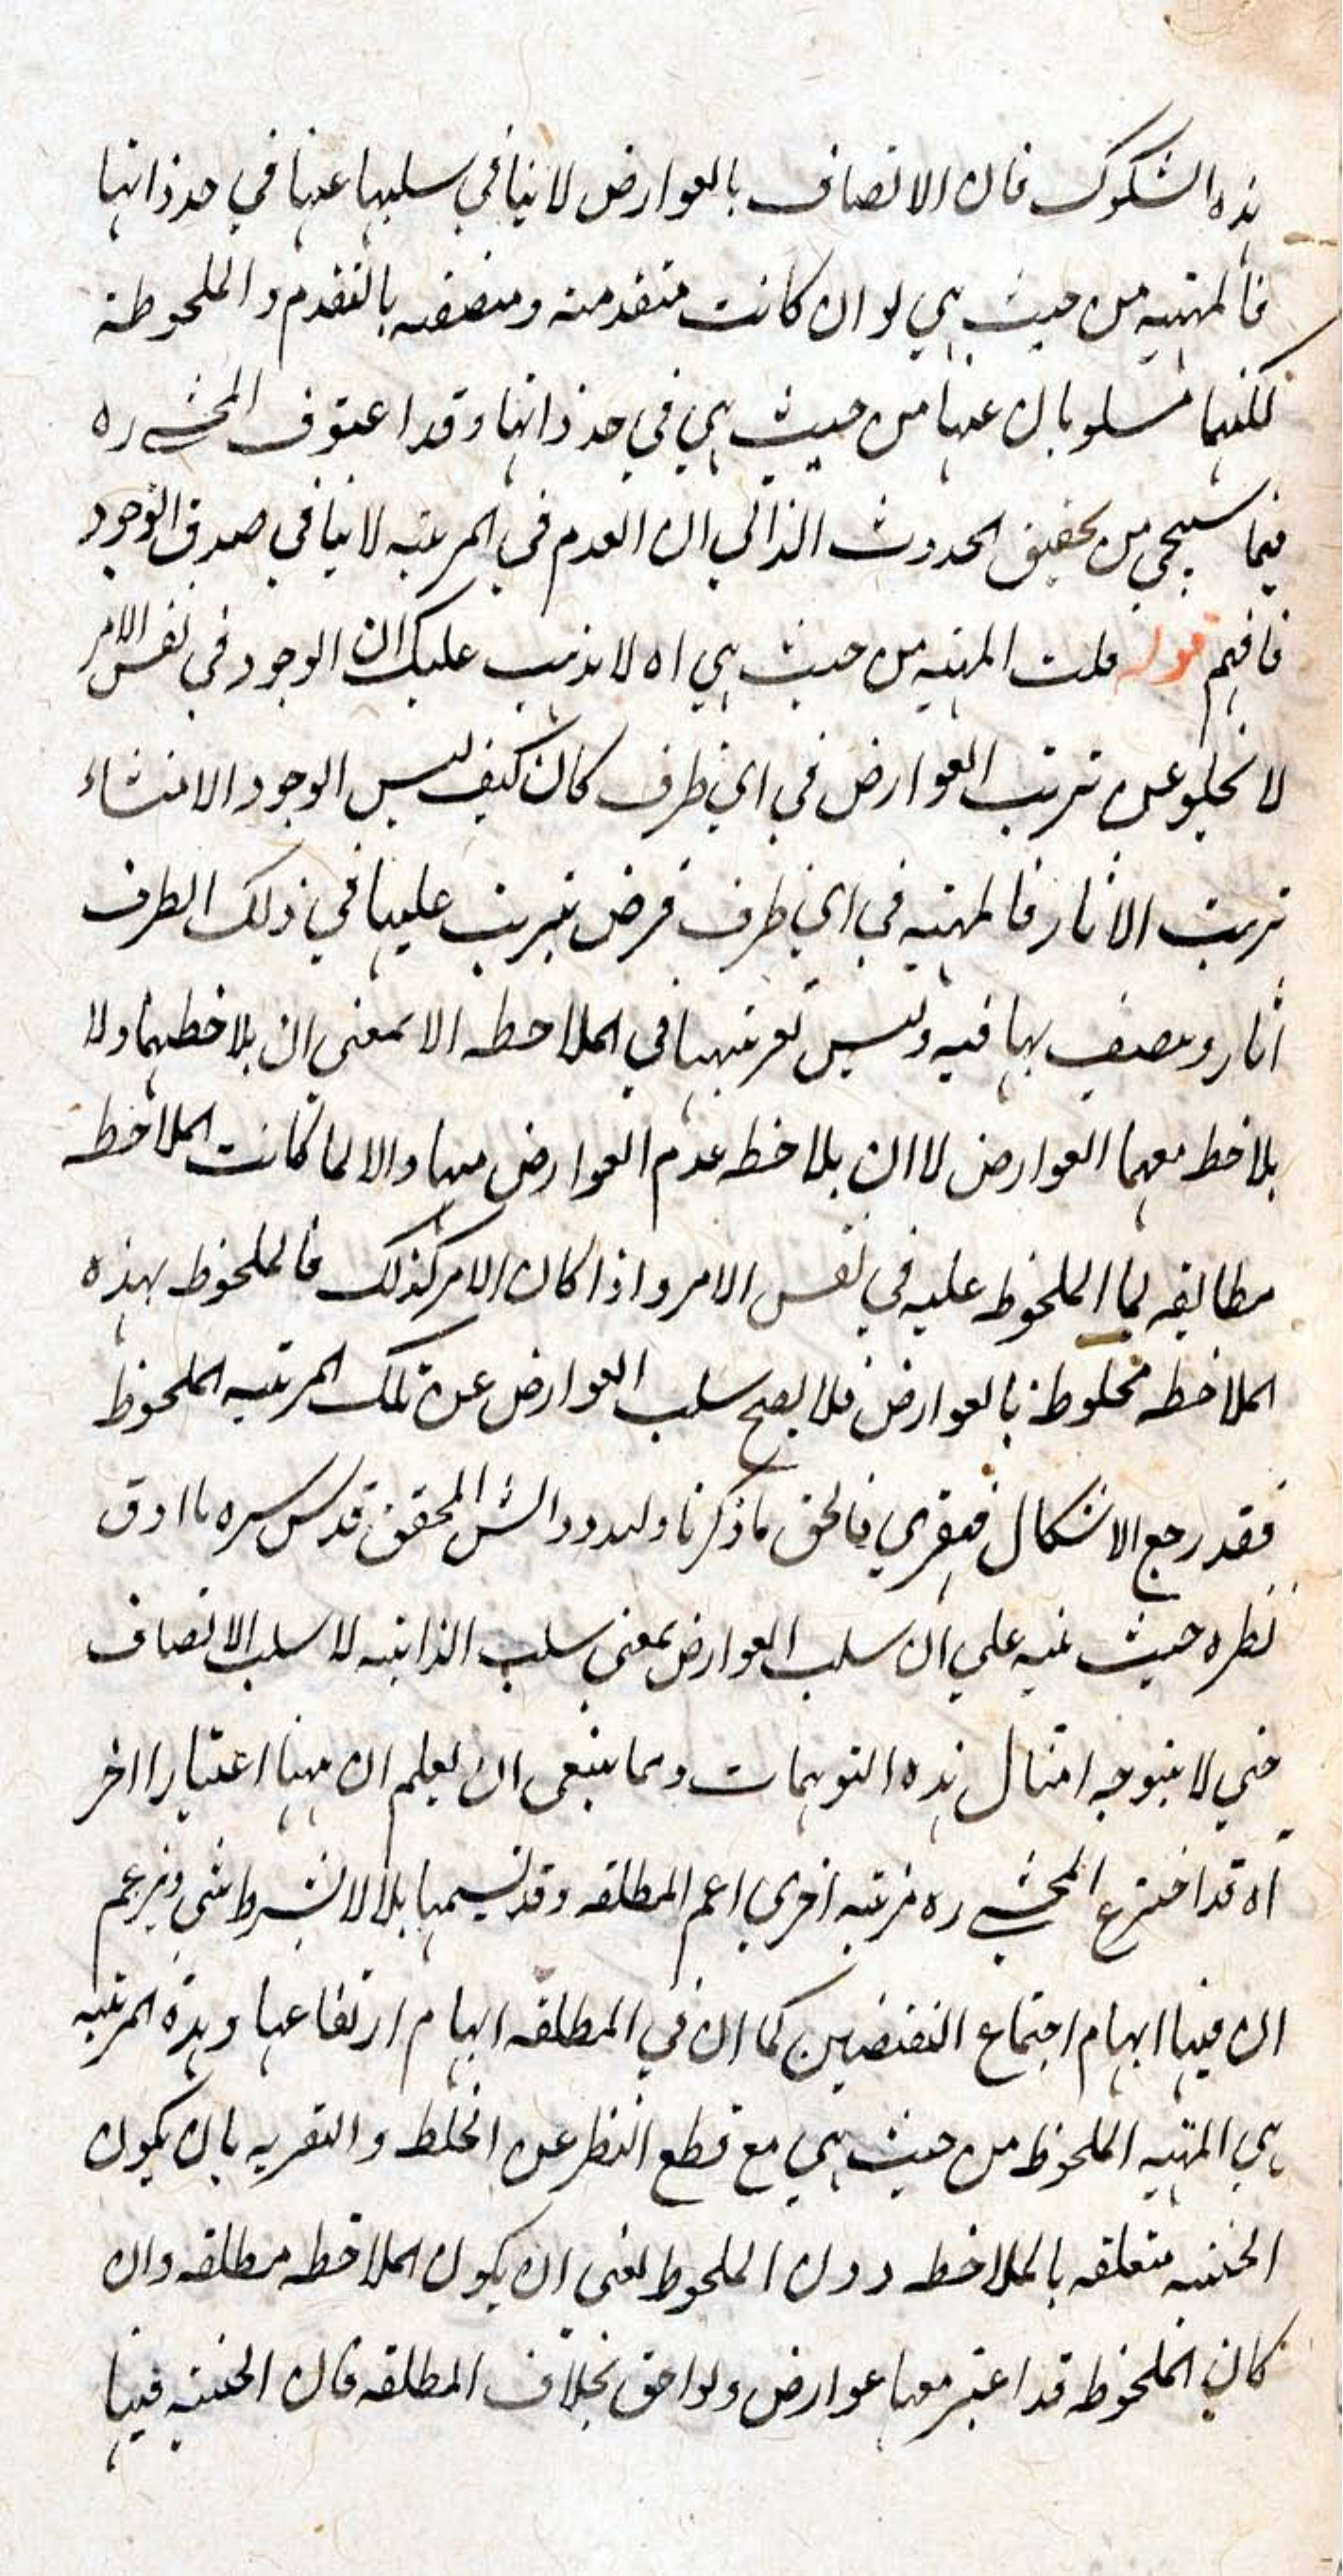 هذه الشكوك فان الاتصاف بالعوارض لا ينافي سلبها عنها في حد ذاتها
فالمهية من حيث هي لو ان كانت متقدمة ومتصفة بالتقدم والملحوظية
لكنهما مسلوبان عنها من حيث هي في حد ذاتها وقد اعترف المحشي ره
فيما سيجي من تحقيق الحدوث الذاتي ان العدم في المرتبة لا ينافي صدق الوجود
فافهم قوله قلت المهية من حيث هي اه لا يذهب عليك ان الوجود في نفس الامر
لا يخلو عن ترتب العوارض في اي ظرف كان كيف ليس الوجود الا منشاء
ترتب الاثار فالمهية في اي ظرف فرض يترتب عليها في ذلك الظرف
اثار ويتصف بها فيه وليس تعريتهما في الملاحظه الا بمعنى ان يلاحظهما ولا
يلاحظ معهما العوارض لا ان يلاحظ عدم العوارض معهما والا لما كانت الملاحظه
مطابقه لما الملحوظ عليه في نفس الامر واذا كان الامر كذلك فالملحوظ بهذه
الملاحظه مخلوطة بالعوارض فلا يصح سلب العوارض عن تلك المرتبه الملحوظ
فقد رجع الاشكال قهقري فالحق ما ذكرنا ولله در الش المحقق قدس سره ما ادق
نظره حيث نبه على ان سلب العوارض بمعنى سلب الذاتيه لا سلب الاتصاف
حتى لا يتوجه امثال هذه التوهمات ومما ينبغى ان يعلم ان ههنا اعتبارا اخر
اه قد اخترع المحشي ره مرتبه اخرى اعم المطلقه وقد يسميها بلا لا بشرط شي ويزعم
ان فيها ابهام اجتماع النقيضين كما ان في المطلقه ابهام ارتفاعها وهذه المرتبه
هي المهيه الملحوظ من حيث هي مع قطع النظر عن الخلط والتعريه بان يكون
الحيثيه متعلقه بالملاحظه دون الملحوظ بمعنى ان يكون الملاحظه مطلقه وان
كان الملحوظه قد اعتبر معها عوارض ولواحق بخلاف المطلقه فان الحيثيه فيها